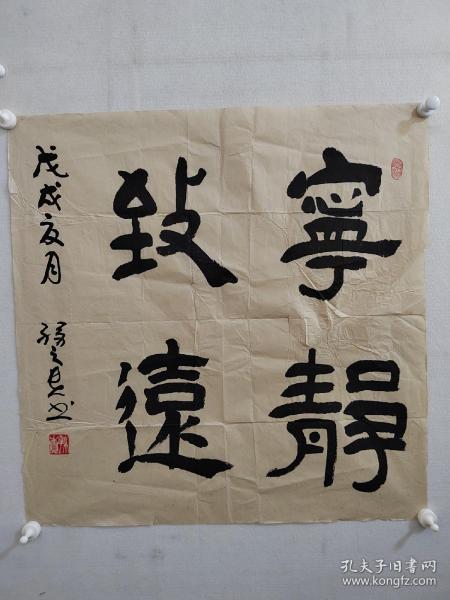 寧靜
致遠
戊戌夏月
孔夫子旧书网
www.kongfz.com